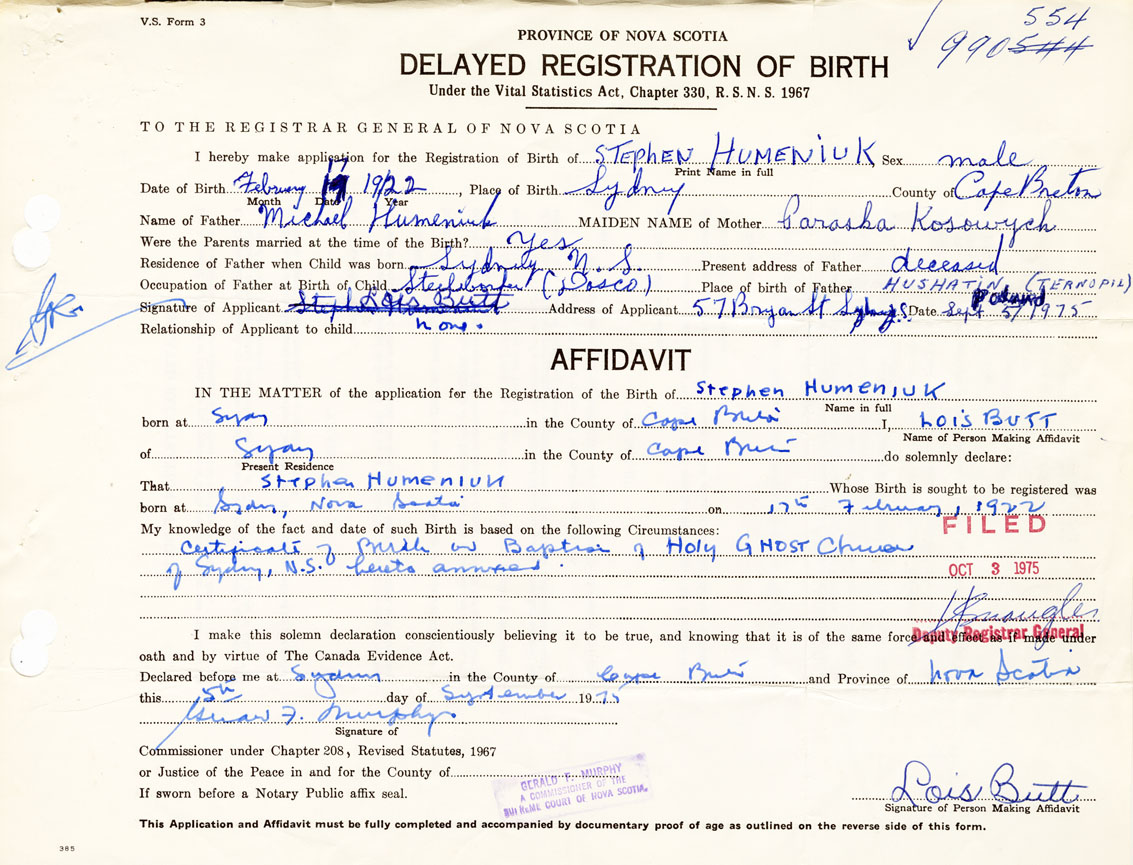 V.S. Form 3
554
990 544
PROVINCE OF NOVA SCOTIA
DELAYED REGISTRATION OF BIRTH
Under the Vital Statistics Act, Chapter 330, R. S. N. S. 1967
TO THE REGISTRAR GENERAL OF NOVA SCOTIA
I hereby make application for the Registration of Birth of STEPHEN HUMENIUK Sex male
Print Name in full
Date of Birth February 17 1922, Place of Birth Sydney County of Cape Breton
Month Date Year
Name of Father Michael Humeniuk MAIDEN NAME of Mother Paraska Kosowych
Were the Parents married at the time of the Birth? Yes
Residence of Father when Child was born Sydney N. S. Present address of Father deceased
Occupation of Father at Birth of Child (Dosco) Place of birth of Father HUSHATIN (TERNOPIL)
Poland
Signature of Applicant Lois Butt Address of Applicant 57 Bryan St Sydney N.S. Date Sept 5/1975
Relationship of Applicant to child none.
AFFIDAVIT
IN THE MATTER of the application for the Registration of the Birth of Stephen HUMENIUK
Name in full
born at Sydney in the County of Cape Breton I, LOIS BUTT
Name of Person Making Affidavit
of Sydney in the County of Cape Breton do solemnly declare:
Present Residence
That Stephen HUMENIUK Whose Birth is sought to be registered was
born at Sydney, Nova Scotia on 17th February, 1922
My knowledge of the fact and date of such Birth is based on the following Circumstances:
FILED
Certificate of Birth and Baptism of Holy GHOST Church
of Sydney, N.S. hereto annexed.
OCT 3 1975
I make this solemn declaration conscientiously believing it to be true, and knowing that it is of the same force and effect as if made under
Deputy Registrar General
oath and by virtue of The Canada Evidence Act.
Declared before me at Sydney in the County of Cape Breton and Province of Nova Scotia
this 5th day of September 1975
Gerald F. Murphy
Signature of
Commissioner under Chapter 208, Revised Statutes, 1967
or Justice of the Peace in and for the County of
If sworn before a Notary Public affix seal.
GERALD F. MURPHY
A COMMISSIONER OF THE
SUPREME COURT OF NOVA SCOTIA
Lois Butt
Signature of Person Making Affidavit
This Application and Affidavit must be fully completed and accompanied by documentary proof of age as outlined on the reverse side of this form.
385